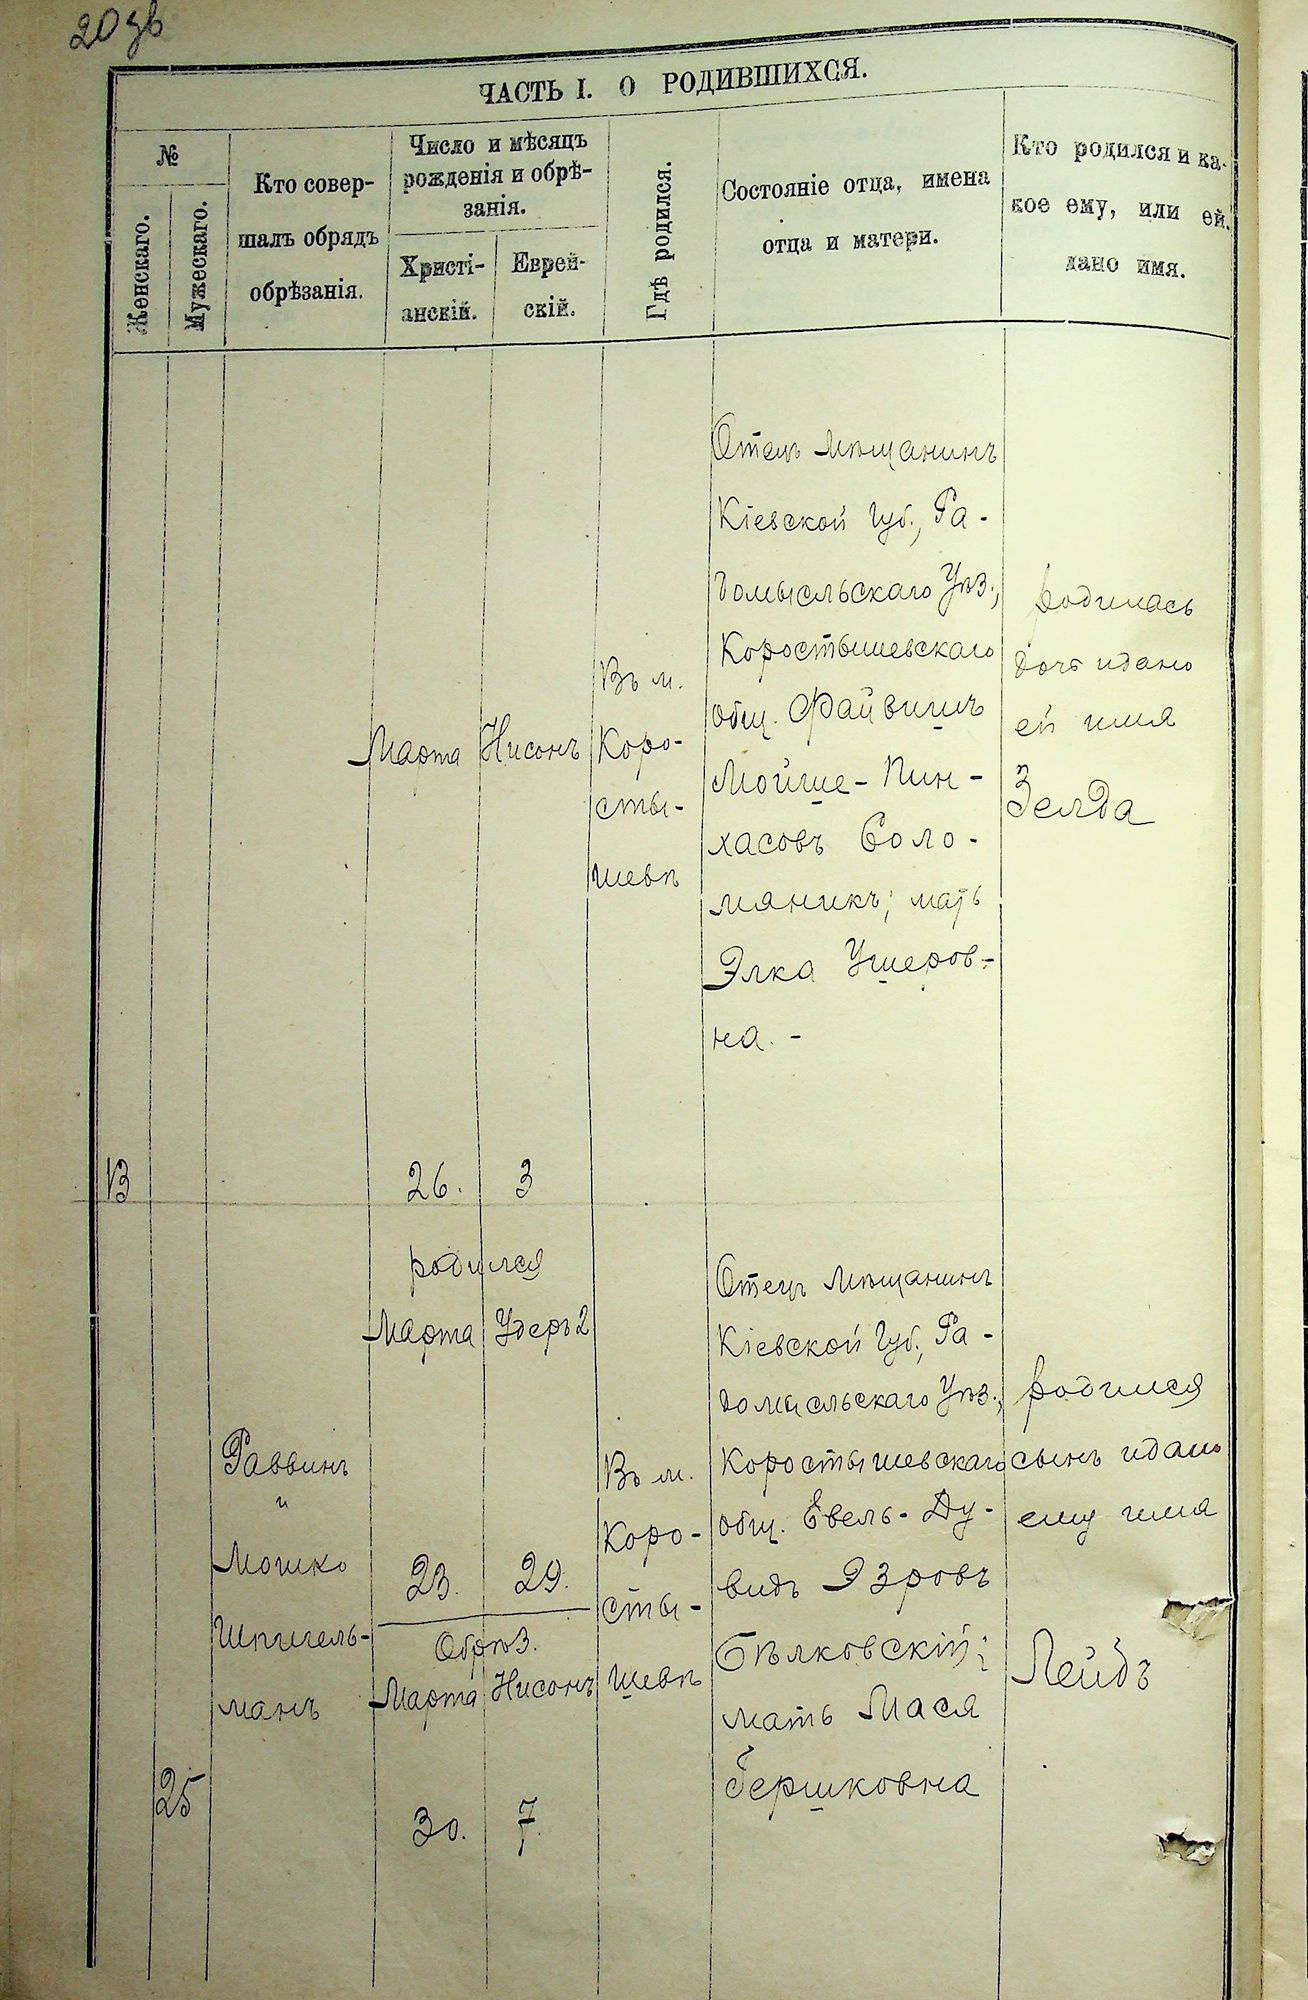 20 зв
ЧАСТЬ I. О РОДИВШИХСЯ.
№
Женскаго.
Мужескаго.
Кто совер-
шалъ обрядъ
обрѣзанія.
Число и мѣсяцъ
рожденія и обрѣ-
занія.
Христі-
анскій.
Еврей-
скій.
Гдѣ родился.
Состояніе отца, имена
отца и матери.
Кто родился и ка-
кое ему, или ей
дано имя.
13
Марта
26.
Нисонъ
3
Въ м.
Коро-
сты-
шевѣ
Отецъ мѣщанинъ
Кіевской Губ., Ра-
домысльскаго Уѣз.,
Коростышевскаго
общ. Файвишъ
Мойше-Пин-
хасовъ Соло-
мяникъ; мать
Элка Ушеров-
на. -
родилась
дочь и дано
ей имя
Зелда
25
Раввинъ
и
Мошко
Шпигель-
манъ
родился
Марта Удеръ 2
23. 29.
Обрѣз.
Марта Нисонъ
30. 7.
Въ м.
Коро-
сты-
шевѣ
Отецъ мѣщанинъ
Кіевской Губ., Ра-
домысльскаго Уѣз.,
Коростышевскаго
общ. Евель-Ду-
видъ Эзровъ
Бѣлковскій;
мать Мася
Гершковна
родился
сынъ и дано
ему имя
Лейбъ